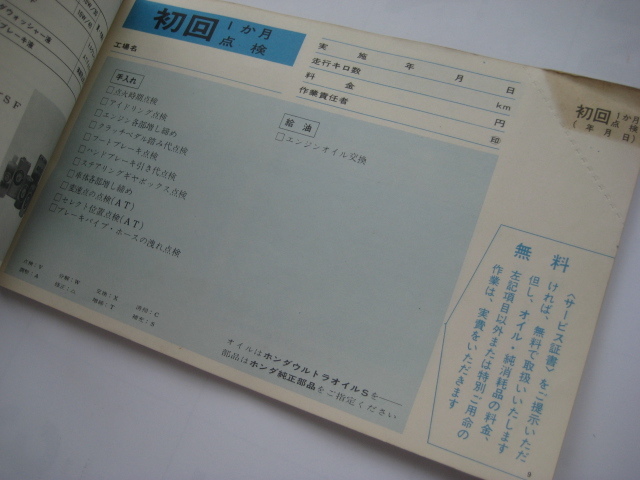 初回 1か月点検
工場名
実施 年 月 日
走行キロ数 km
料金 円
作業責任者 印
手入れ
□点火時期点検
□アイドリング点検
□エンジン各部増し締め
□クラッチペダル踏み代点検
□フートブレーキ点検
□ハンドブレーキ引き代点検
□ステアリングギヤボックス点検
□車体各部増し締め
□変速点の点検(AT)
□セレクト位置点検(AT)
□ブレーキパイプ・ホースの洩れ点検
給油
□エンジンオイル交換
オイルはホンダウルトラオイルSを
部品はホンダ純正部品をご指定ください
初回 1か月点検
(年月日)
無料
〈サービス証書〉をご提示いただ
ければ、無料で取扱いいたします
但し、オイル・純消耗品の料金、
左記項目以外または特別ご用命の
作業は、実費をいただきます
9
ブレーキ液
SF